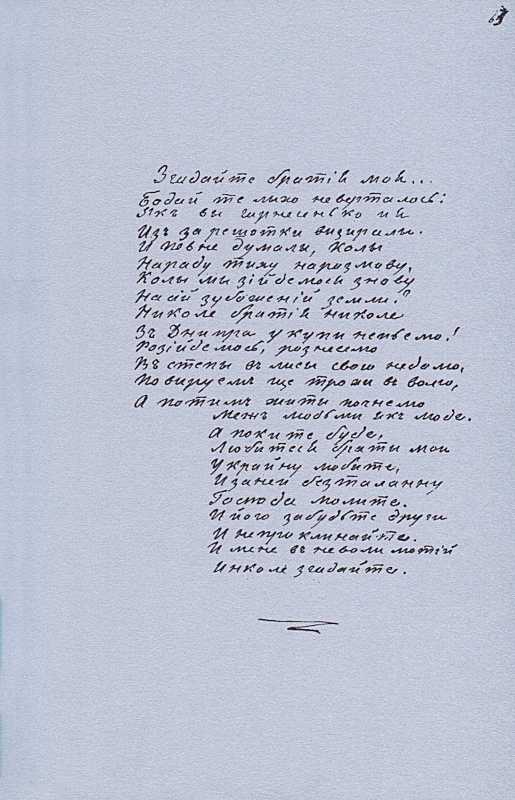 Згадайте братія моя...
Бодай те лихо неверталось:
Якъ вы гарнесинько ия
Изъ за решотки визирали.
И певне думалы, Колы
Нараду тиху нарозмову,
Колы мы зійдемося знову
На сій зубоженій земли?
Николе братія николе
Зъ Днипра укупи непьемо!
Розійдемось, рознесемо
Въ степы въ лисы свою недолю,
Повируемъ ще трохи въ волю,
А потимъ жыты почнемо
Межъ людьми якъ люде.
А поки те буде,
Любитеся браты мои
Украйну любите,
И за неи безталанну
Господа молите.
И його забудьте други
И непроклинайте.
И мене въ неволи лютій
Инколе згадайте.